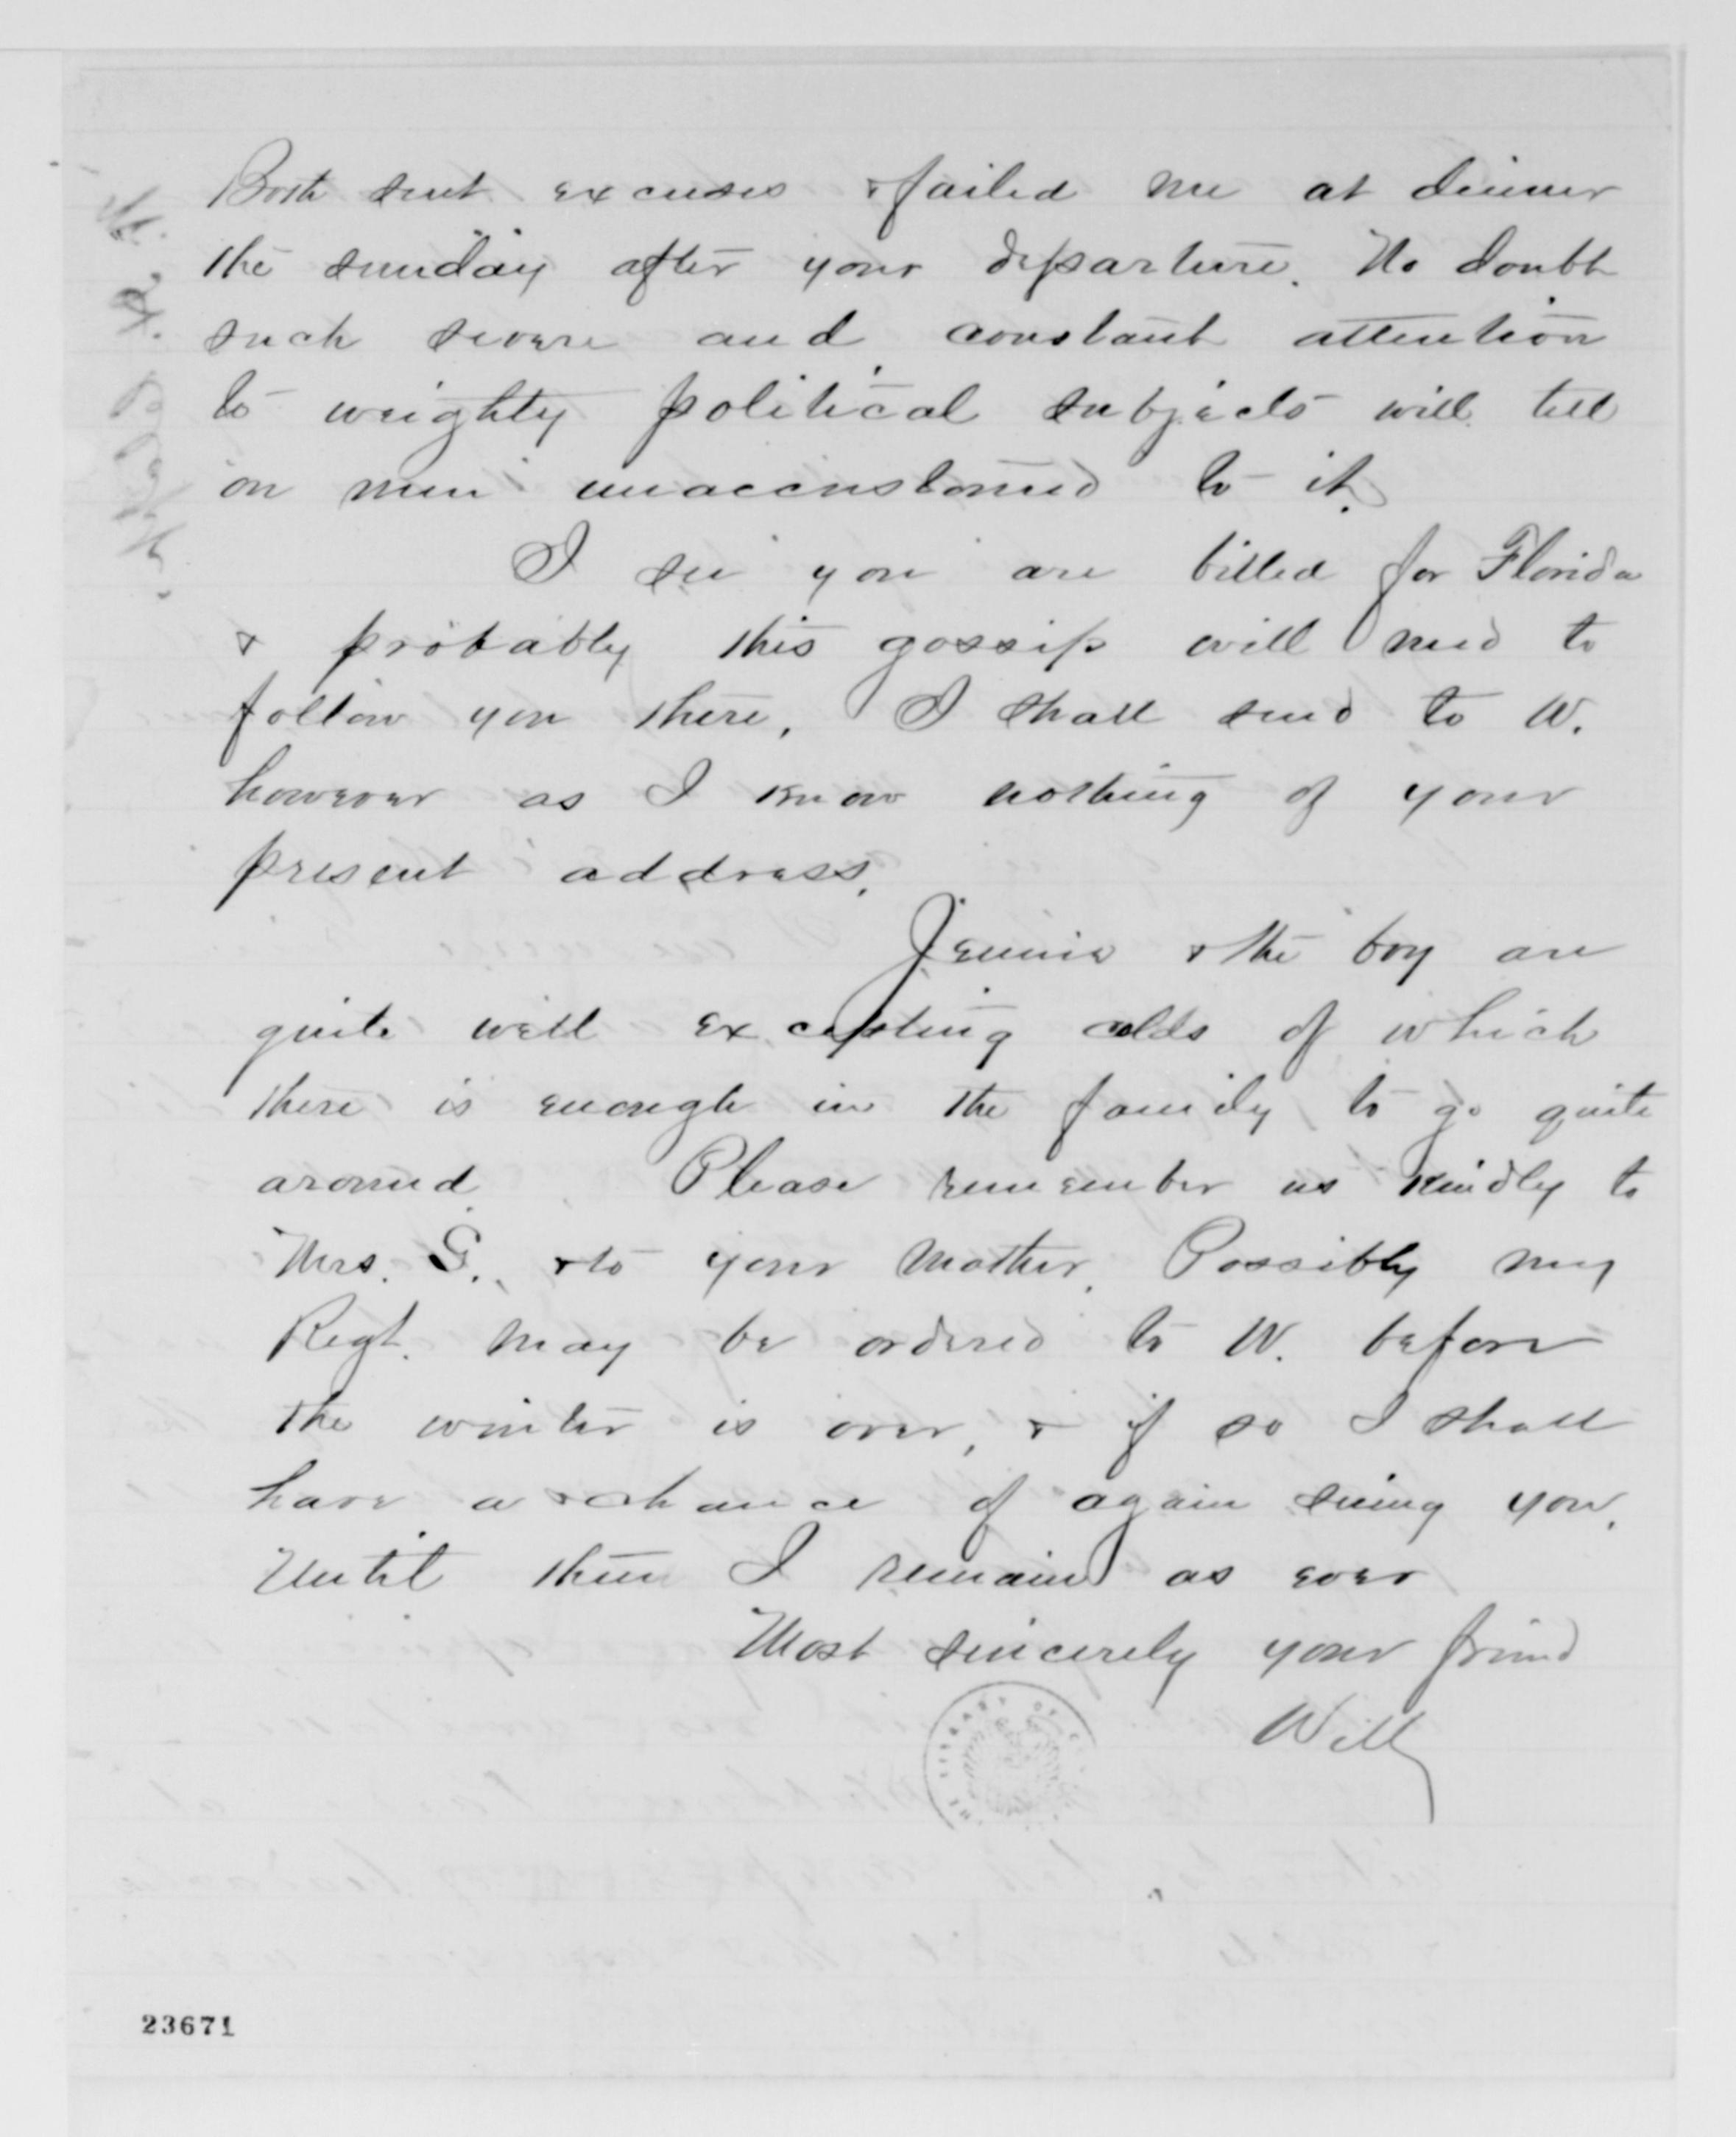 Both sent excuses & failed me at dinner
the sunday after your departure. No doubt
such severe and constant attention
to weighty political subjects will tell
on men unaccustomed to it.
I see you are billed for Florida
& probably this gossip will need to
follow you there. I shall send to W.
however as I know nothing of your
present address.
Jennie & the boy are
quite well excepting colds of which
there is enough in the family to go quite
around. Please remember us kindly to
Mrs. G. & to your Mother. Possibly my
Regt. may be ordered to W. before
the winter is over, & if so I shall
have a chance of again seeing you.
Until then I remain as ever
Most sincerely your friend
Will
23671